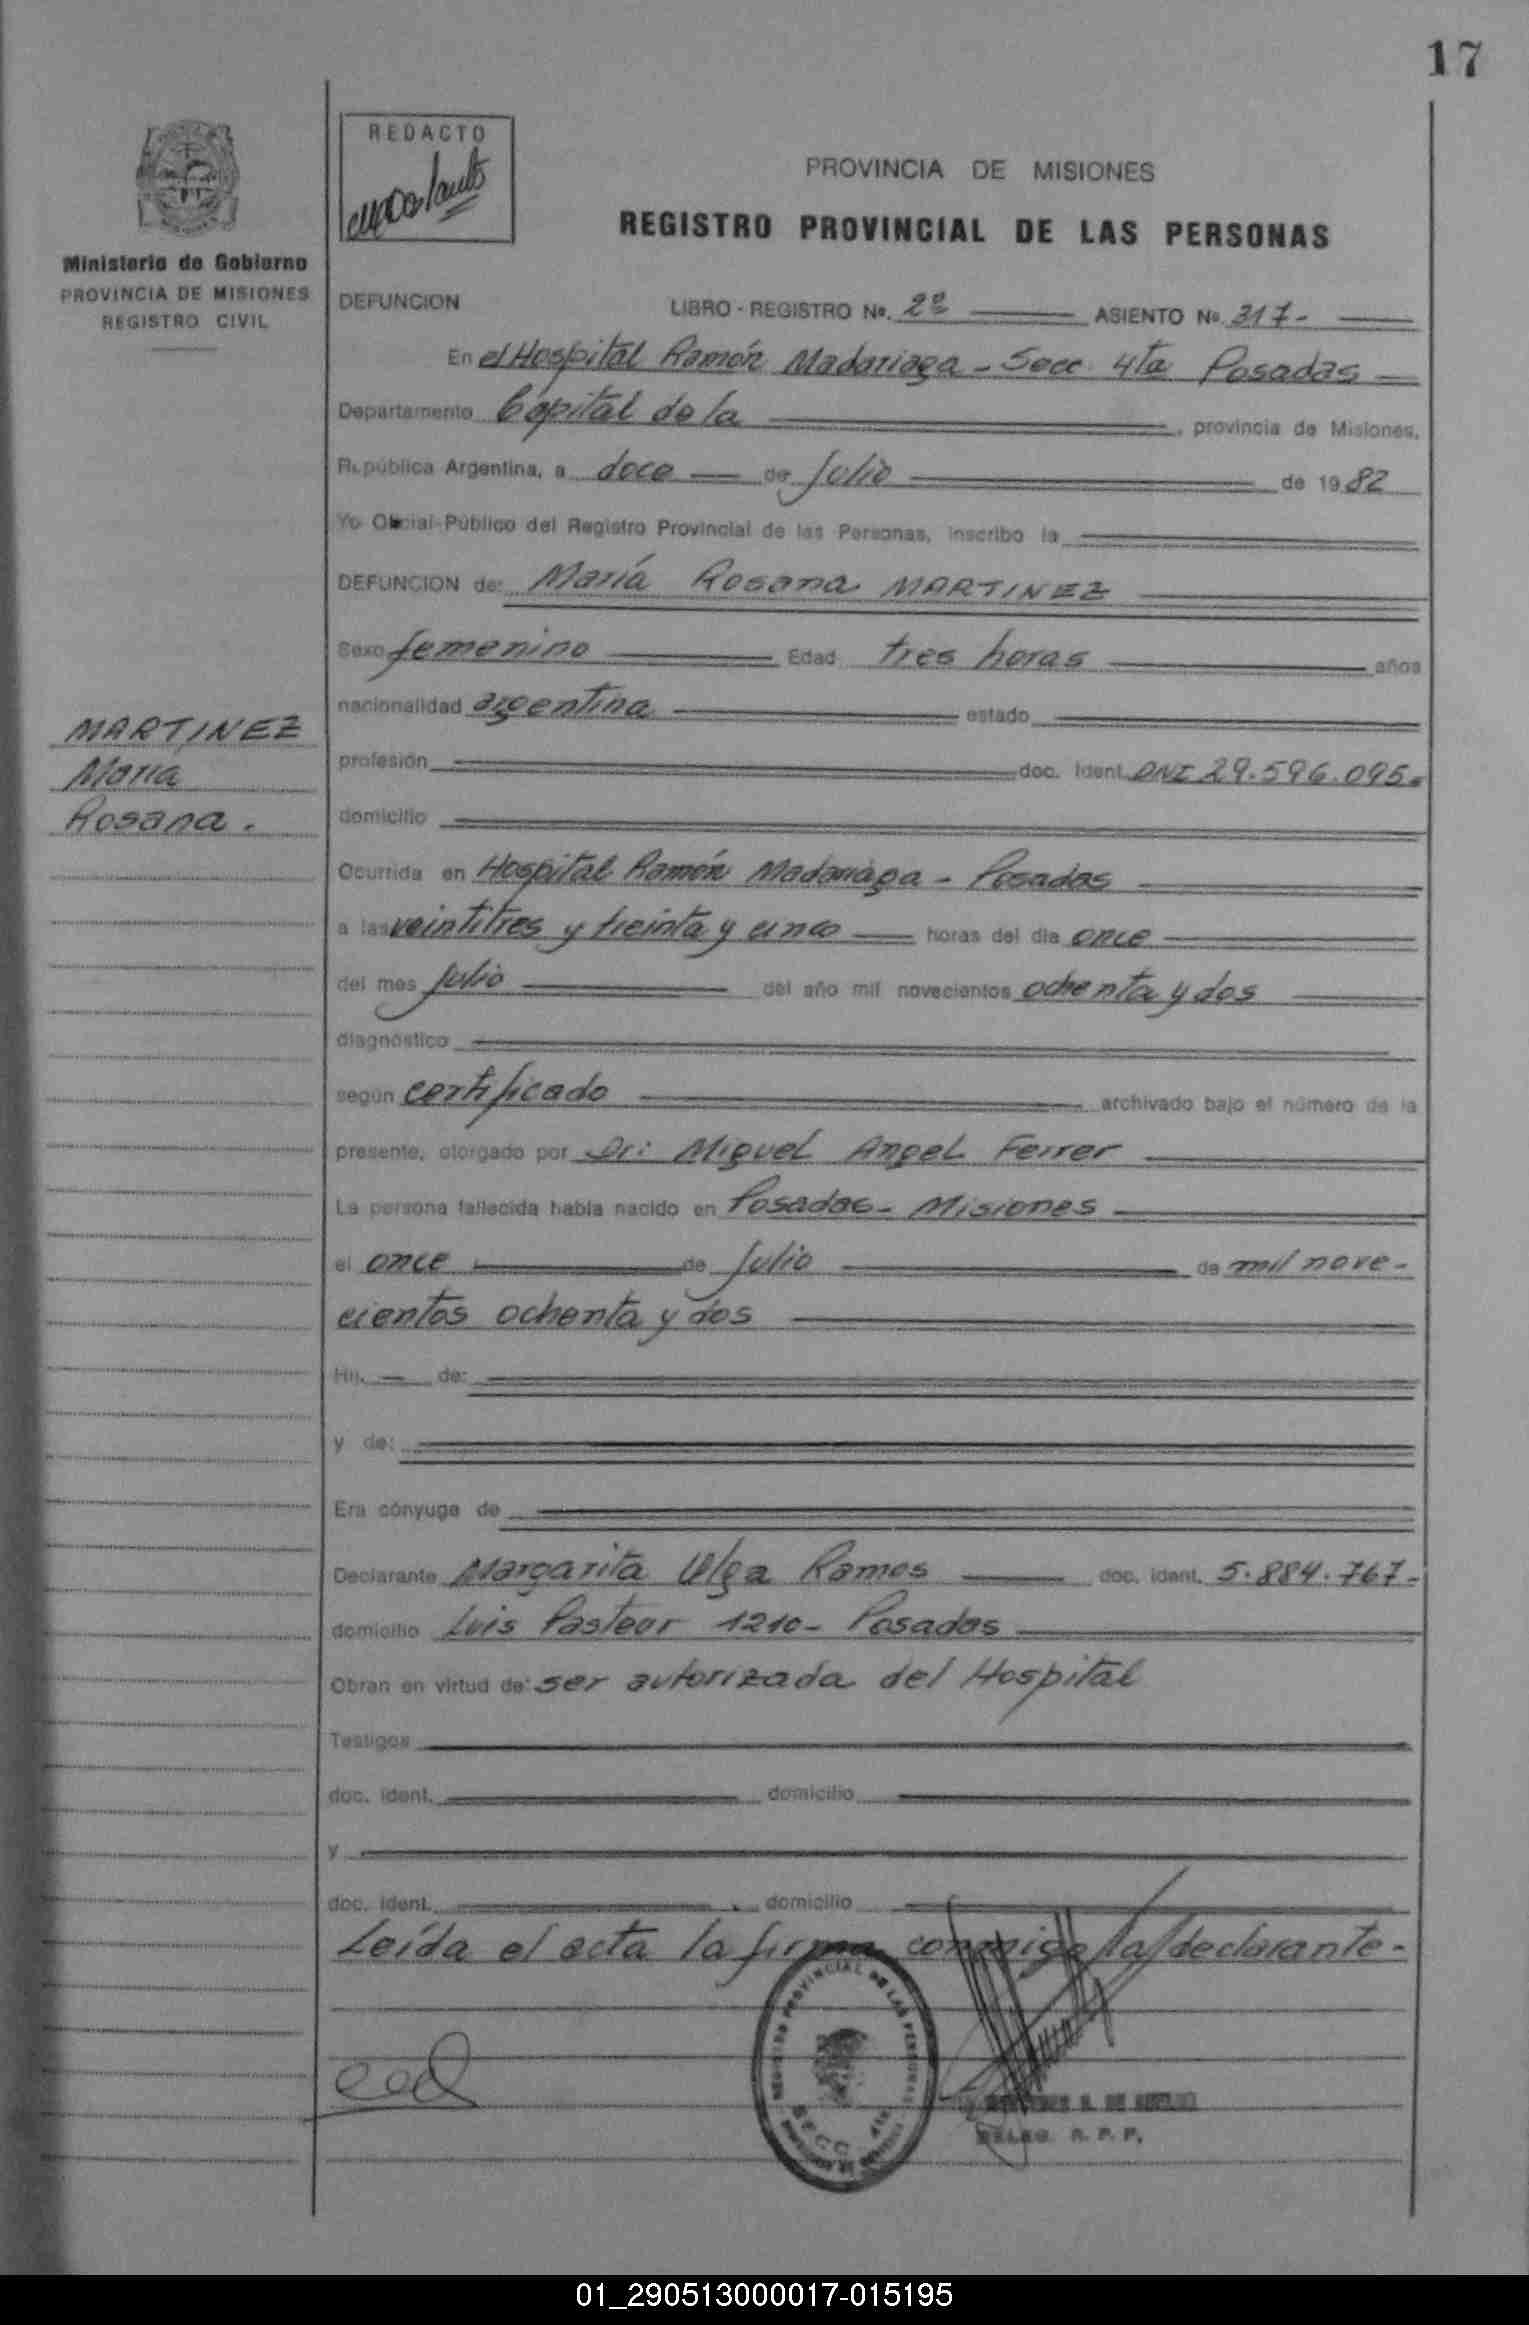 17
REDACTO
PROVINCIA DE MISIONES
REGISTRO PROVINCIAL DE LAS PERSONAS
Ministerio de Gobierno
PROVINCIA DE MISIONES
REGISTRO CIVIL
DEFUNCION LIBRO - REGISTRO Nº. 2º ASIENTO Nº 317-
En el Hospital Ramón Madariaga - Secc. 4ta Posadas
Departamento Capital de la , provincia de Misiones,
República Argentina, a doce de Julio de 1982
Yo Oficial Público del Registro Provincial de las Personas, inscribo la
DEFUNCION de: María Rosana MARTINEZ
Sexo femenino Edad tres horas años
nacionalidad argentina estado
MARTINEZ
María
Rosana.
profesión doc. ident. DNI 29.596.095.
domicilio
Ocurrida en Hospital Ramón Madariaga - Posadas
a las veintitres y treinta y cinco horas del día once
del mes Julio del año mil novecientos ochenta y dos
diagnóstico
según certificado archivado bajo el número de la
presente, otorgado por Dr: Miguel Angel Ferrer
La persona fallecida había nacido en Posadas - Misiones
el once de Julio de mil nove-
cientos ochenta y dos
Hij. de:
y de:
Era cónyuge de
Declarante Margarita Olga Ramos doc. ident. 5.884.767-
domicilio Luis Pasteur 1210- Posadas
Obran en virtud de: ser autorizada del Hospital
Testigos
doc. ident. domicilio
y
doc. ident. domicilio
Leída el acta la firma conmigo la declarante-
REGISTRO PROVINCIAL DE LAS PERSONAS
SECC. 4ta.
DELEG. R. P. P.
01_290513000017-015195